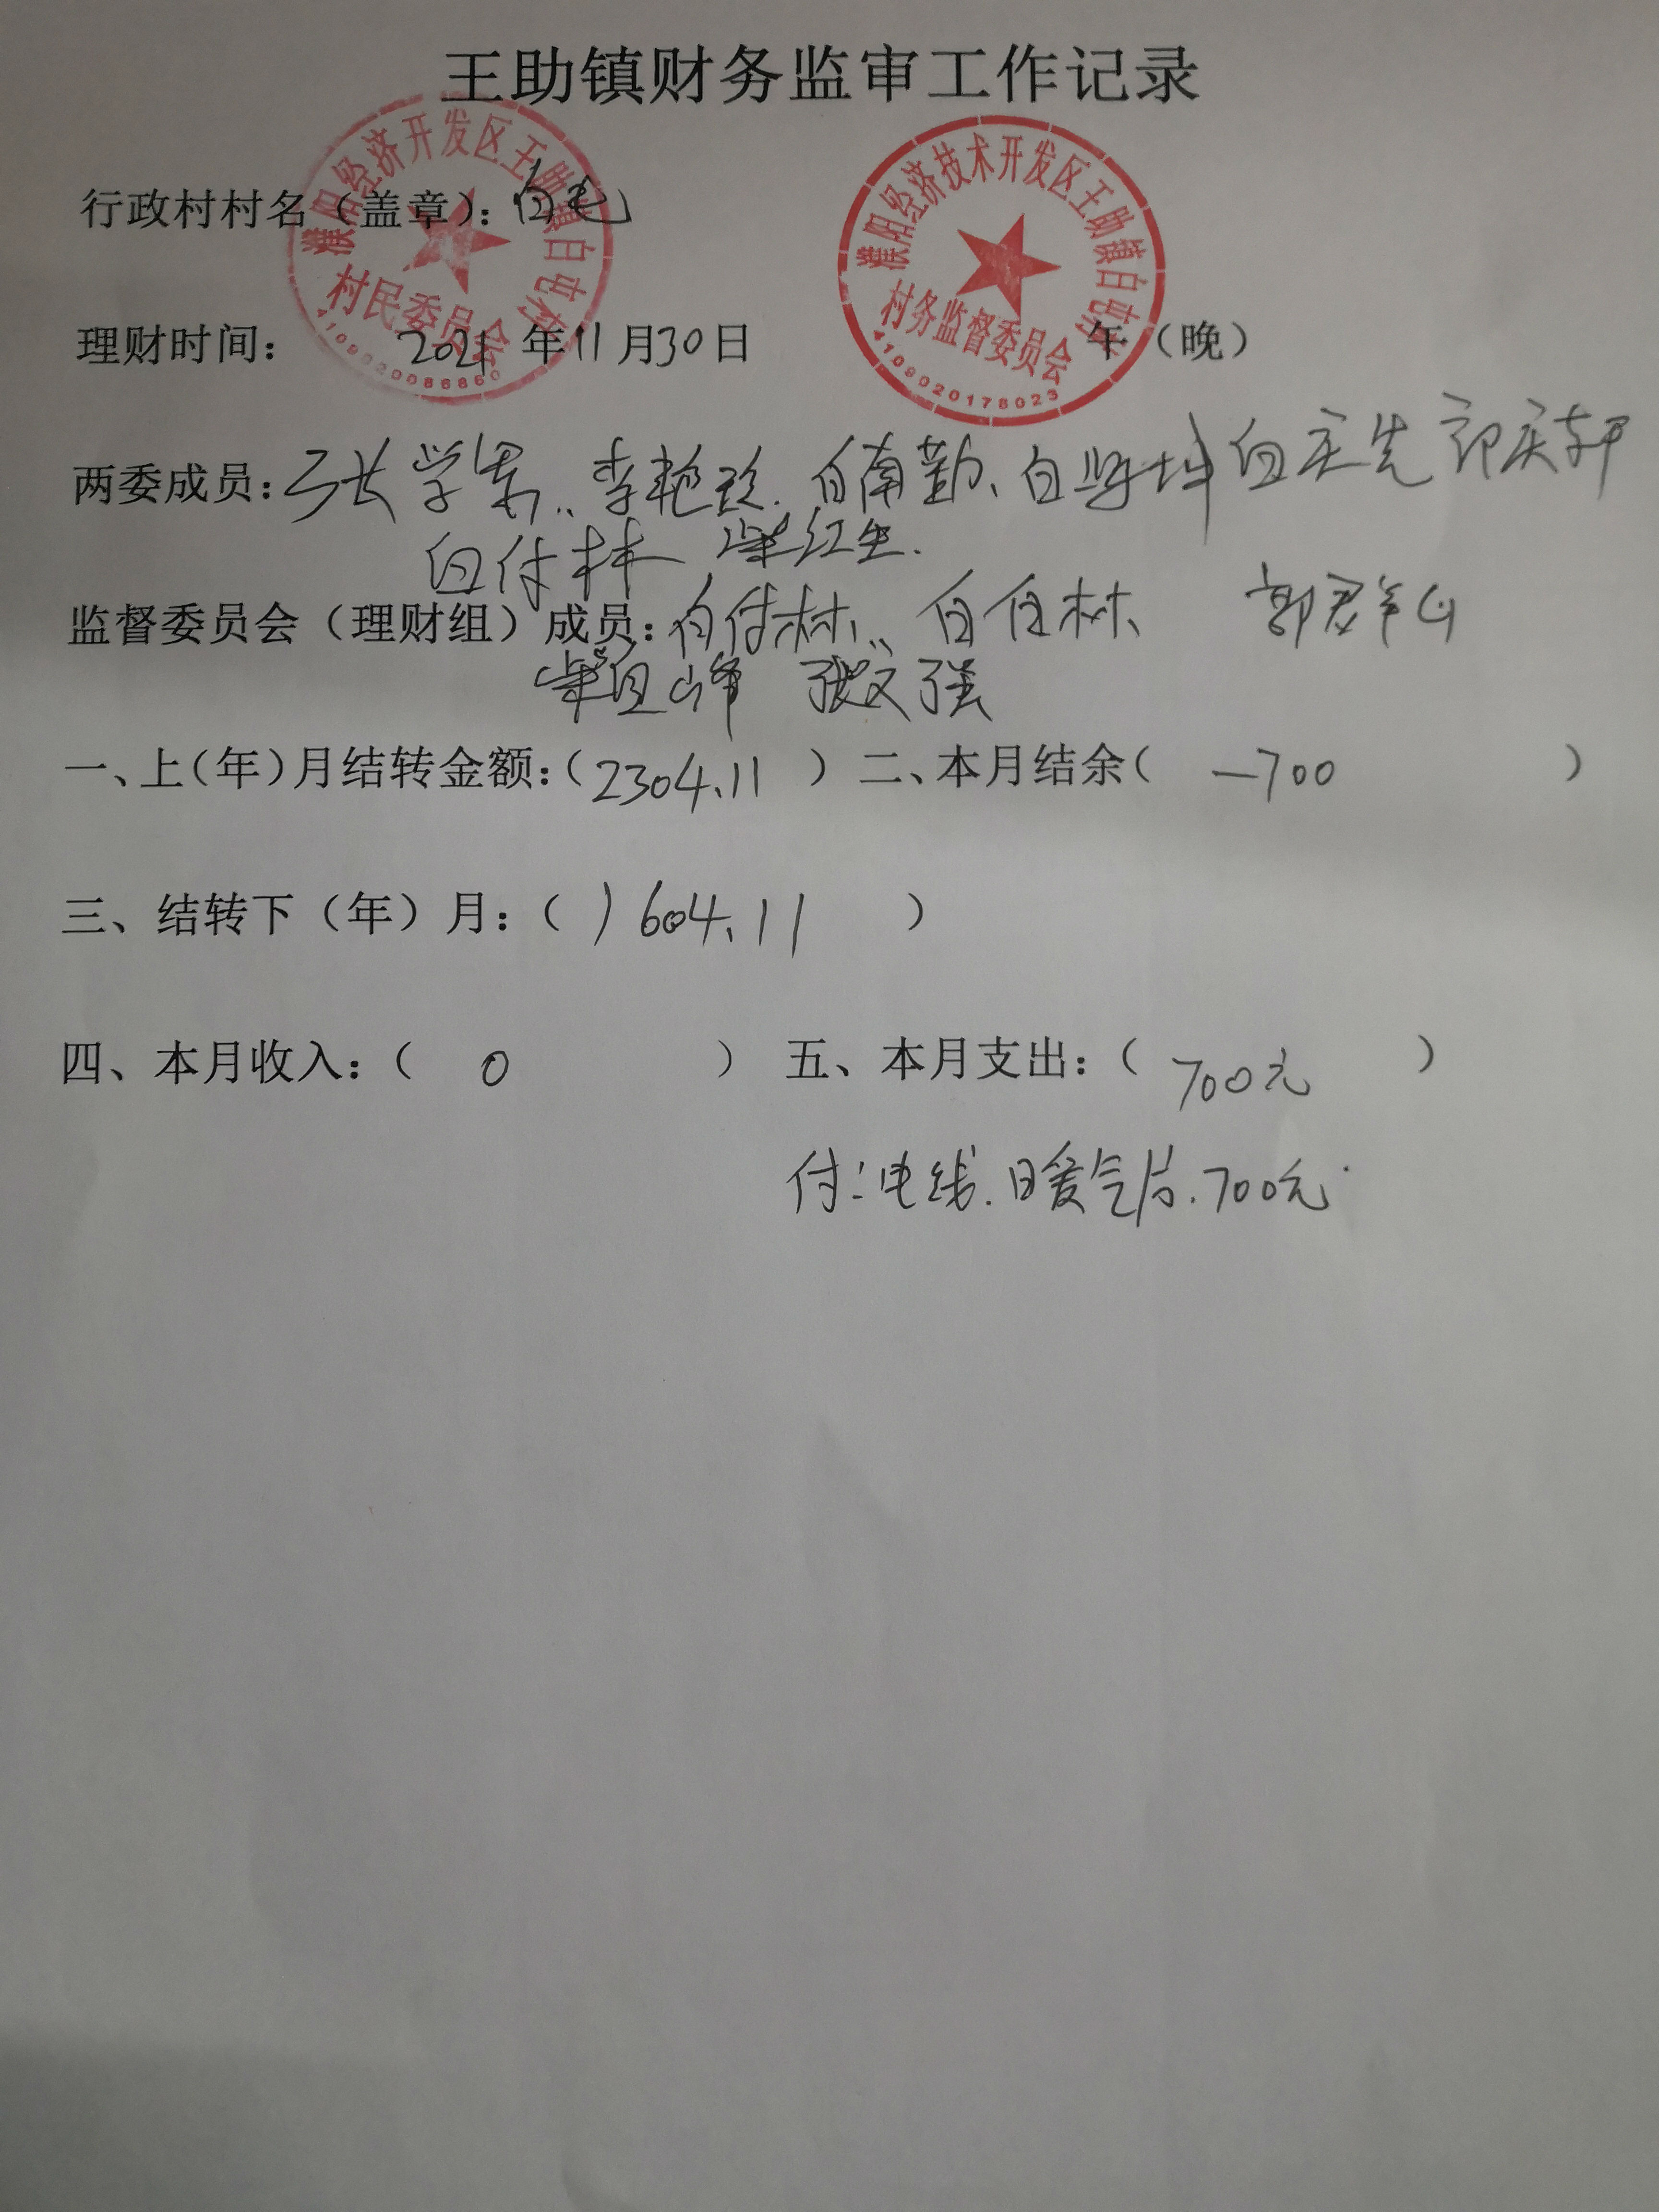 王助镇财务监审工作记录
濮阳经济开发区王助镇白屯村
村民委员会
4109020086860
濮阳经济技术开发区王助镇白屯村
村务监督委员会
4109020178023
行政村村名（盖章）：白屯
理财时间： 2021 年 11 月 30 日 午（晚）
两委成员： 张学军、李艳玲、白南勤、白 白庆先
白付林 红生
监督委员会（理财组）成员：白付林、白自林 郭群山
张文强
一、上（年）月结转金额：（2304.11 ）二、本月结余（ -700 ）
三、结转下（年）月：（1604.11 ）
四、本月收入：（ 0 ） 五、本月支出：（ 700元 ）
付：电线.暖气片.700元